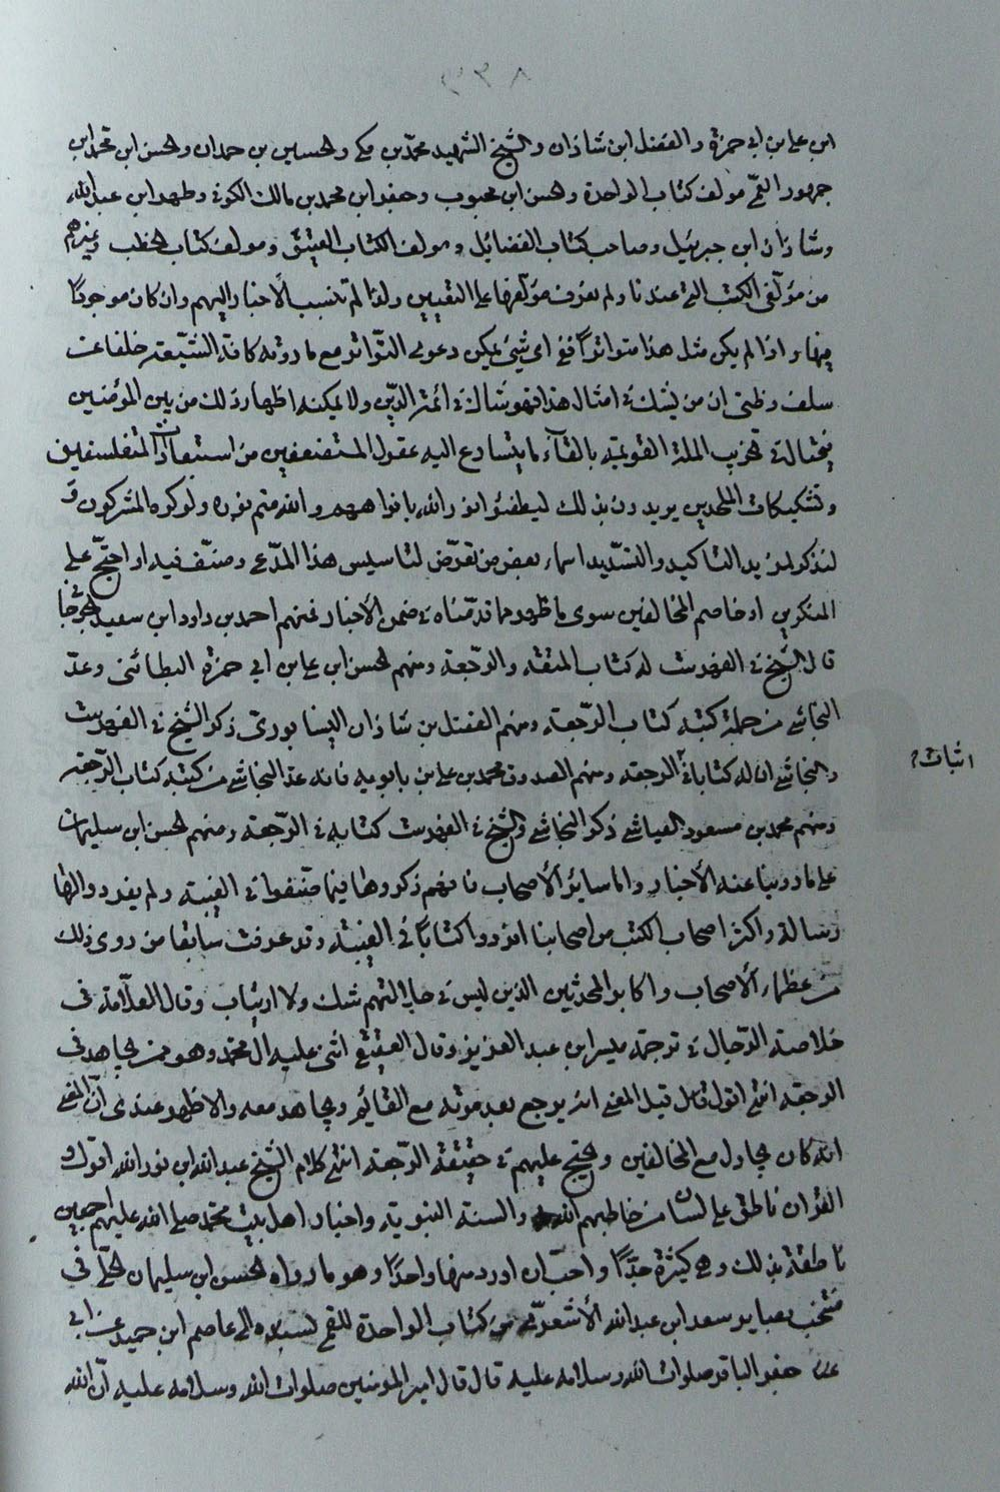 ٣٠٨
ابن علي بن ابي حمزة والفضل ابن شاذان والشيخ الشهيد محمد بن مكي والحسين بن حمدان والحسن ابن محمد ابن
جمهور القمي مولف كتاب الواحدة والحسن ابن محبوب وجعفر ابن محمد بن مالك الكوفي وطهر ابن عبد الله
وشاذان ابن جبرئيل وصاحب كتاب الفضائل ومولف الكتاب العتيق ومولف كتاب الخطب وغيرهم
من مؤلفي الكتب التي عندنا ولم نعرف مؤلفها على التعيين ولذا لم تنسب الأخبار اليهم وان كان موجودًا
فيها واذا لم يكن مثل هذا متواترًا ففي اي شيئ يمكن دعوى التواتر مع ما روته كافة الشيعة خلفا عن
سلف وظني ان من يشك في امثال هذا فهو شاك في ائمة الدين ولا يمكنه اظهار ذلك من بين المؤمنين
فيحتال في تخريب الملة القويمة بالقاء ما يتسارع اليه عقول المستضعفين من استبعادات المتفلسفين
وتشكيكات الملحدين يريدون بذلك ليطفئوا نور الله بافواههم والله متم نوره ولو كره المشركون و
لنذكر لمزيد التاكيد والتشديد اسماء بعض من تعرض لتاسيس هذا المدعى وصنف فيه او احتج على
المنكرين او خاصم المخالفين سوى ما ظهر مما قدمناه في ضمن الأخبار فمنهم احمد بن داود ابن سعيد الجرجاني
قال الشيخ في الفهرست له كتاب المتعة والرجعة ومنهم الحسن ابن علي بن ابي حمزة البطائني وعد
النجاشي من جملة كتبه كتاب الرجعة ومنهم الفضل بن شاذان النيسابوري ذكر الشيخ في الفهرست
والنجاشي ان له كتابا في الرجعة ومنهم الصدوق محمد بن علي بن بابويه فانه عد النجاشي من كتبه كتاب الرجعة
اثبات
ومنهم محمد بن مسعود العياشي ذكر النجاشي والشيخ في الفهرست كتابه في الرجعة ومنهم الحسن ابن سليمان
على ما روينا عنه الأخبار واما سائر الأصحاب فانهم ذكروها فيما صنفوا في الغيبة ولم يفردوا لها
رسالة واكثر اصحاب الكتب من اصحابنا افردوا كتابًا في الغيبة وقد عرفت سابقا من روى ذلك
من عظماء الأصحاب واكابر المحدثين الذين ليس في جلالتهم شك ولا ارتياب وقال العلامة في
خلاصة الرجال في ترجمة ميسر ابن عبد العزيز وقال العقيقي اثنى عليه ال محمد وهو ممن يجاهد في
الرجعة انتهى اقول قيل المعنى انه يرجع بعد موته مع القائم ويجاهد معه والاظهر عندي ان المعنى
انه كان يجاول مع المخالفين ويحتج عليهم في حقيقة الرجعة انتهى كلام الشيخ عبد الله ابن نور الله اقول و
القران ناطق على لسان من خاطبهم الله والسنة النبوية واخبار اهل بيت محمد صلى الله عليهم اجمعين
ناطقة بذلك وهي كثيرة جدًا واحب ان اورد منها واحدًا وهو ما رواه الحسن ابن سليمان الحلي في
منتخب بصاير سعد ابن عبد الله الأشعري من كتاب الواحدة للقمي بسنده الى عاصم ابن حميد عن ابي
جعفر الباقر صلوات الله وسلامه عليه قال قال امير المومنين صلوات الله وسلامه عليه ان الله